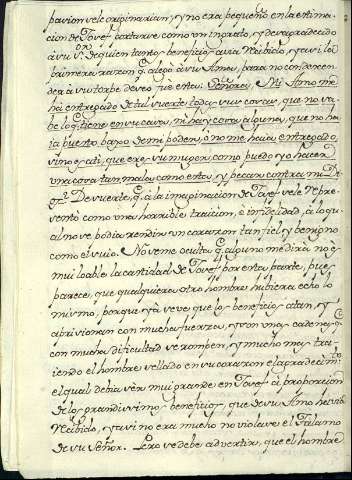 passion se le originarian, y no era pequeño en la estima-
cion de Josef portarse como un ingrato, y desagradecido
à su Sor. de quien tantos beneficios avia Recibido, y asi lo
primera razon q. alegò à su Ama, para no condescen-
der à su torpe deseo fue esta: Señora, Mi Amo me
ha entregado de tal suerte todas sus cosas, que no sa-
be lo q. tiene en su casa, ni hay cosa alguna, que no ha-
ia puesto baxo de mi poder, ò no me haia entregado,
sino es à ti, que eres su muger: como puedo yo hacer
una cosa tan mala como esta, y pecar contra mi
De suerte, q. à la imaginacion de Josef se le Repre-
sentò como una horrible traicion, è infidelidad, à lo qu-
al no se podia rendir un corazon tan fiel, y benigno
como el suio. No se me oculta q. alguno me dirà no es
mui loable la cantidad de Josef por esta parte, pues
parece, que qualquiera otro hombre hubiera echo lo
mismo, porque ya se ve que los beneficios atan, y
aprisionan con mucha fuerza, y son unas cadenas q.
con mucha dificultad se rompen, y mucho mas tra-
iendo el hombre sellado en su corazon el agradecimto.
el qual debia ser mui grande en Josef à proporcion
de los grandissimos beneficios, que de su Amo havia
Recibido, y asi no era mucho no violase el Talamo
de su Señor. Pero se debe advertir, que el hombre